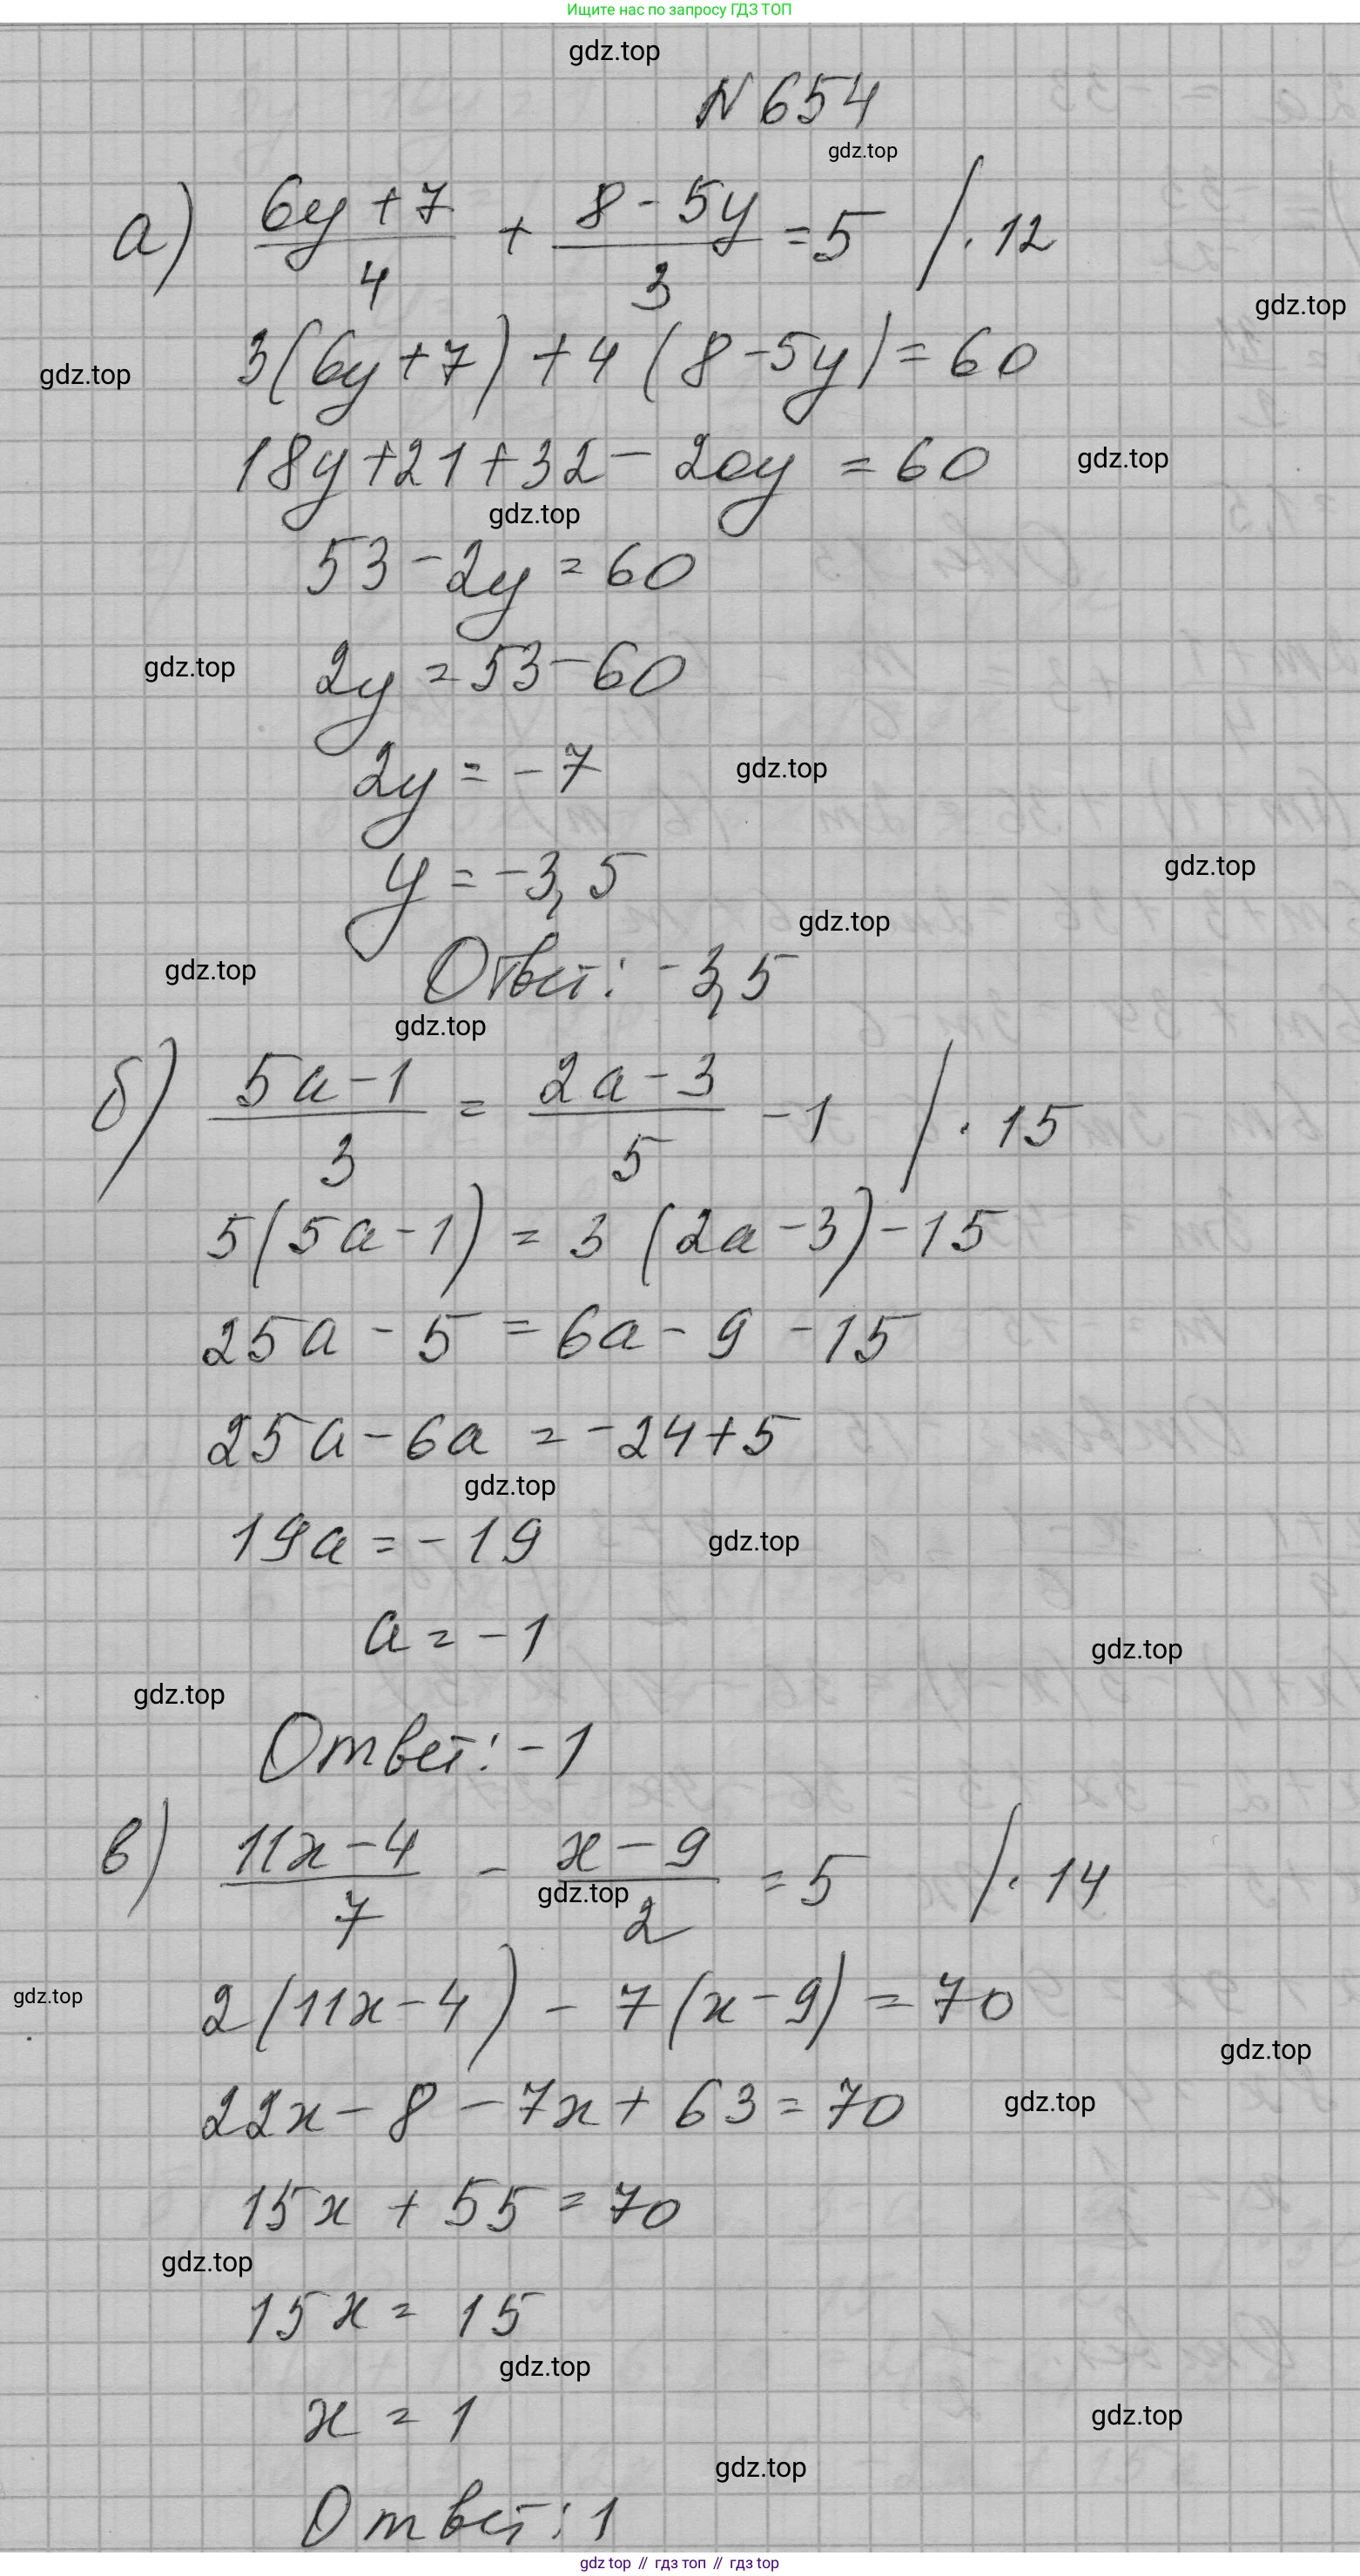 Ищите нас по запросу ГДЗ ТОП
gdz.top
N 654
gdz.top
а) (6y + 7)/4 + (8 - 5y)/3 = 5 / · 12
gdz.top
gdz.top
3(6y + 7) + 4(8 - 5y) = 60
18y + 21 + 32 - 20y = 60
gdz.top
gdz.top
53 - 2y = 60
2y = 53 - 60
gdz.top
2y = -7
gdz.top
y = -3,5
gdz.top
gdz.top
Ответ: -3,5
gdz.top
gdz.top
б) (5a - 1)/3 = (2a - 3)/5 - 1 / · 15
5(5a - 1) = 3(2a - 3) - 15
25a - 5 = 6a - 9 - 15
25a - 6a = -24 + 5
gdz.top
19a = -19
gdz.top
a = -1
gdz.top
gdz.top
Ответ: -1
в) (11x - 4)/7 - (x - 9)/2 = 5 / · 14
gdz.top
gdz.top
2(11x - 4) - 7(x - 9) = 70
gdz.top
22x - 8 - 7x + 63 = 70
gdz.top
15x + 55 = 70
gdz.top
15x = 15
gdz.top
x = 1
gdz.top
gdz.top
Ответ: 1
gdz top // гдз топ // гдз top